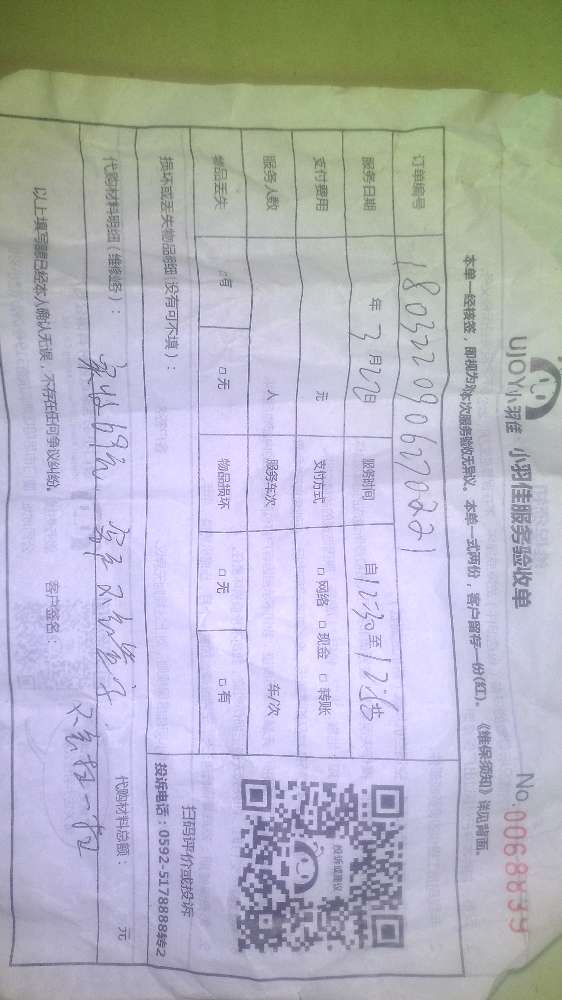 UJOY小羽佳 小羽佳服务验收单
No.0068839
本单一经核签，即视为对本次服务验收无异议。本单一式两份，客户留存一份(红)。《维保须知》详见背面。
订单编号 1803220906270221
服务日期 年 3月22日 服务时间 自12:30至
支付费用 元 支付方式 □网络 □现金 □转账
服务人数 人 服务车次 车/次
物品丢失 □有 □无 物品损坏 □无 □有
损坏或丢失物品明细（没有可不填）：
扫码评价或投诉
投诉或建议
投诉电话：0592-5178888转2
代购材料明细（维修类）： 代购材料总额： 元
以上填写都已经本人确认无误，不存在任何争议纠纷。 客户签名：